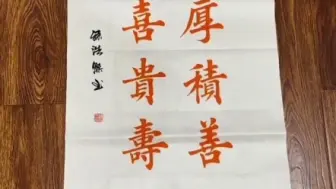 厚積善
喜貴壽